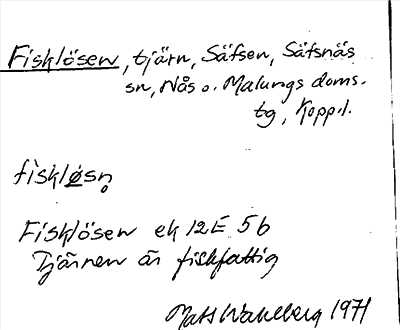 Fisklösen, tjärn, Säfsen, Säfsnäs
sn, Nås o. Malungs doms.
tg, Kopp.l.
fìskløsn̥
Fisklösen ek 12E 5b
Tjärnen är fiskfattig
Mats Wahlberg 1971